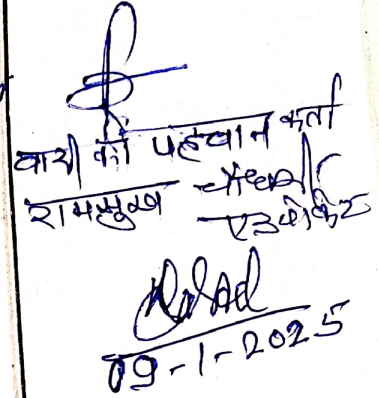 वादी की पहचान कर्ता
रामसुख चौधरी
एडवोकेट
09-1-2025